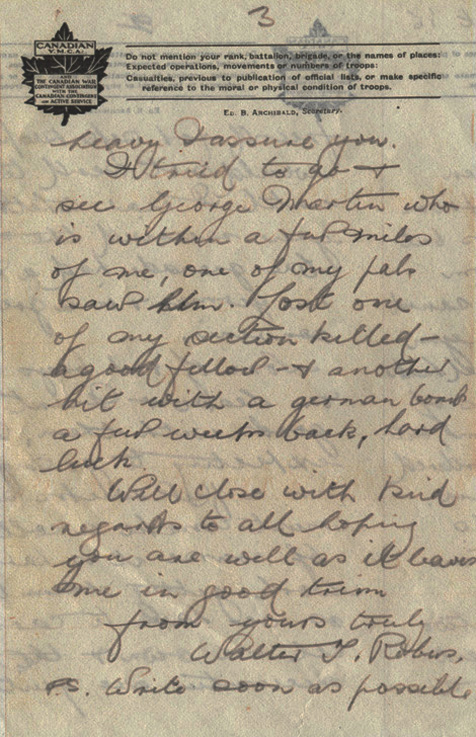 3
CANADIAN
Y.M.C.A.
AND
THE CANADIAN WAR
CONTINGENT ASSOCIATION
WITH THE
CANADIAN CONTINGENT
ON ACTIVE SERVICE
Do not mention your rank, battalion, brigade, or the names of places:
Expected operations, movements or numbers of troops:
Casualties, previous to publication of official lists, or make specific
reference to the moral or physical condition of troops.
ED. B. ARCHIBALD, Secretary.
heavy I assure you.
I tried to go &
see George Martin who
is within a few miles
of me, one of my pals
saw him. Lost one
of my section killed -
a good fellow - & another
hit with a german bomb
a few weeks back, hard
luck.
Will close with kind
regards to all hoping
you are well as it leaves
me in good trim
from yours truly
Walter T. Robus,
P.S. Write soon as possible